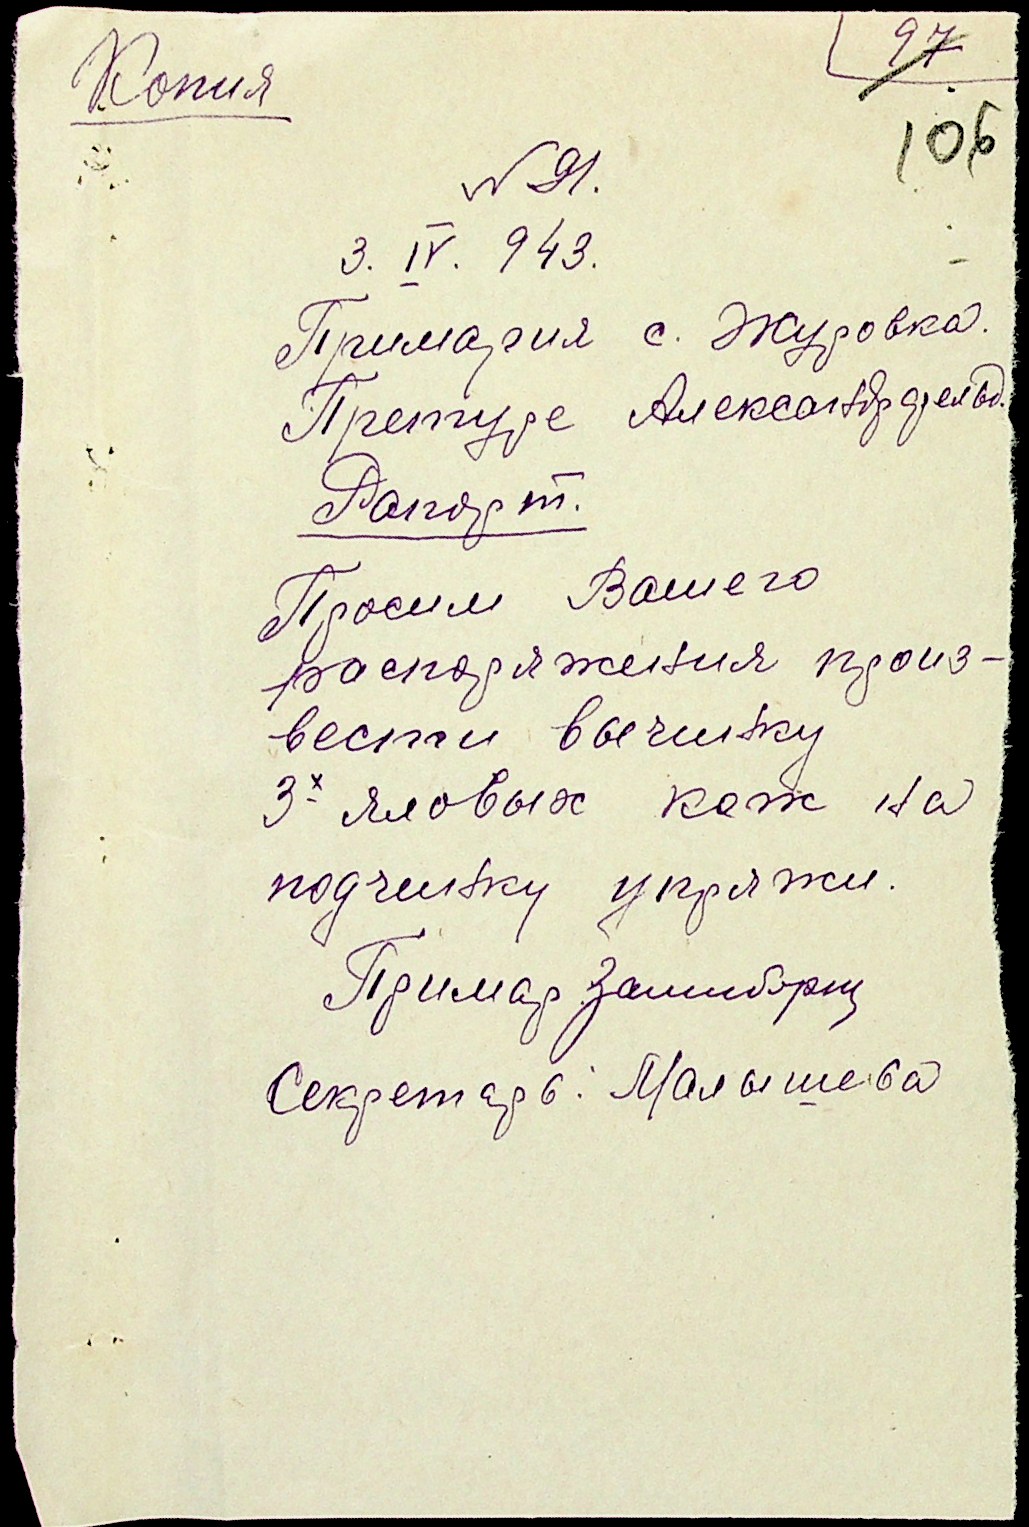 Копия
97
106
№ 91.
3. IV. 943.
Примария с. Журовка.
Претуре Александрфельд.
Рапорт.
Просим Вашего
распоряжения произ-
вести вычинку
3х яловых кож на
подчинку упряжи.
Примар
Секретарь: Малышева